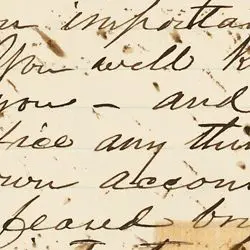 importa
You well k
you – and
fice any thin
own accou
feared br